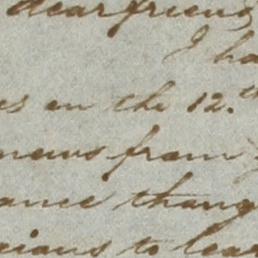 dear friend
I ha
es on the 12.th
news from
ance thang
cians to lear